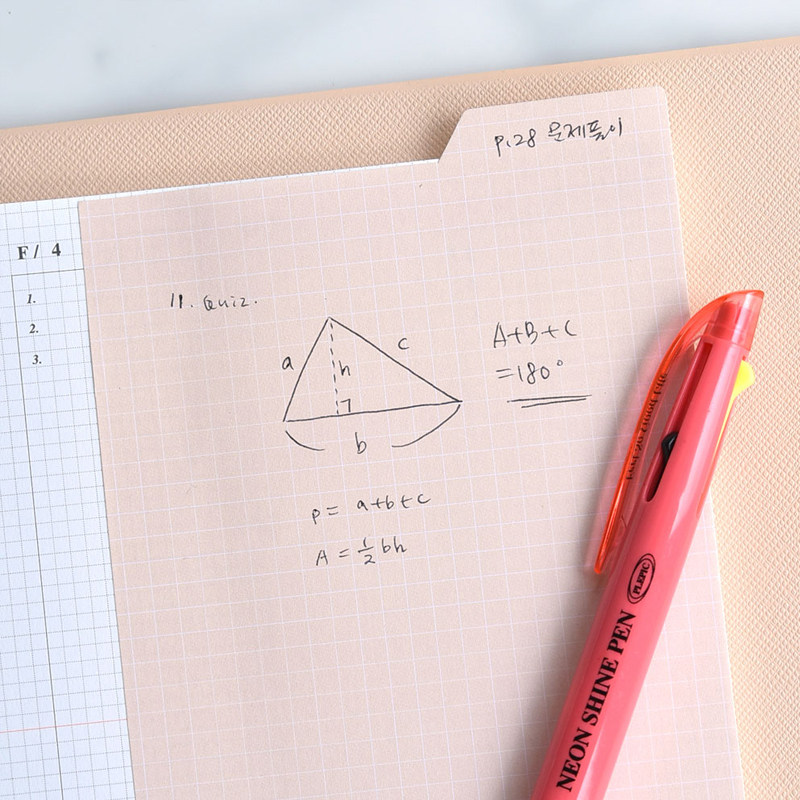 p.28 문제풀이
F/ 4
1.
2.
3.
11. Quiz.
a
h
c
b
A+B+C
=180°
P = a+b+c
A = ½bh
PLEPIC
NEON SHINE PEN